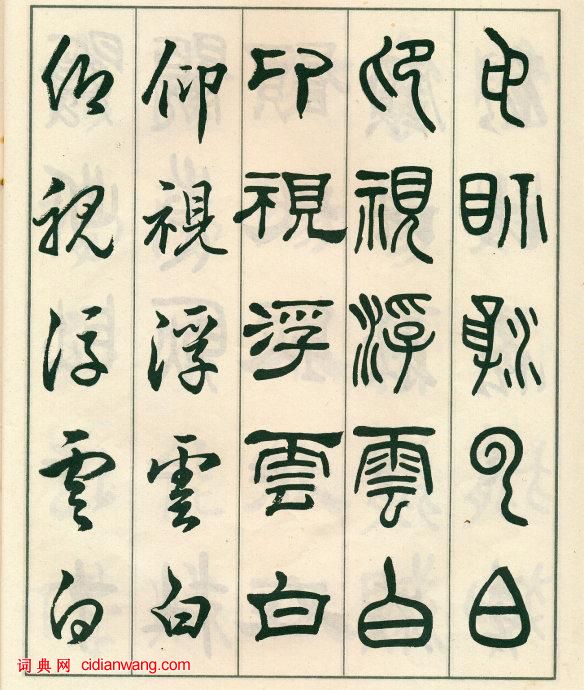 卬眎浮云白
卬視浮雲白
卬視浮雲白
仰視浮雲白
仰視浮雲白
词典网 cidianwang.com